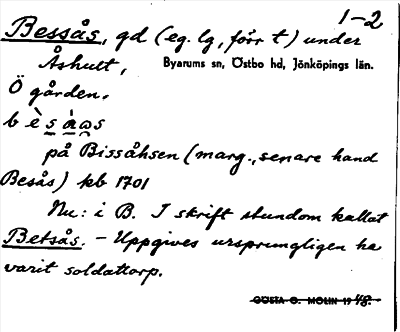 1-2
Bessås, gd (eg. lg, förr t) under
Åshult, Byarums sn, Östbo hd, Jönköpings län.
Ö gården.
b è s à ω s
på Bissåhsen (marg., senare hand
Besås) kb 1701
Nu: i B. I skrift stundom kallat
Betsås. – Uppgives ursprungligen ha
varit soldattorp.
GÖSTA O. MOLIN 1948.